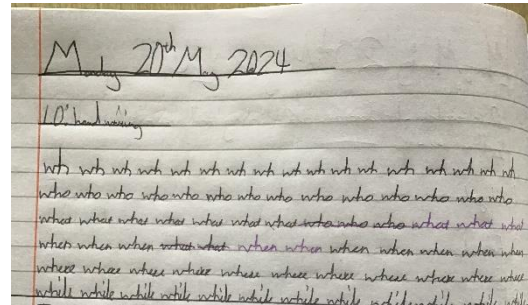 Monday 20th May 2024
LO: handwriting
wh wh wh wh wh wh wh wh wh wh wh wh wh wh wh wh wh
who who who who who who who who who who who who who who
what what what what what what what who who who what what what
when when when what what when when when when when when when
where where where where where where where where where where where
while while while while while while while while while while while while